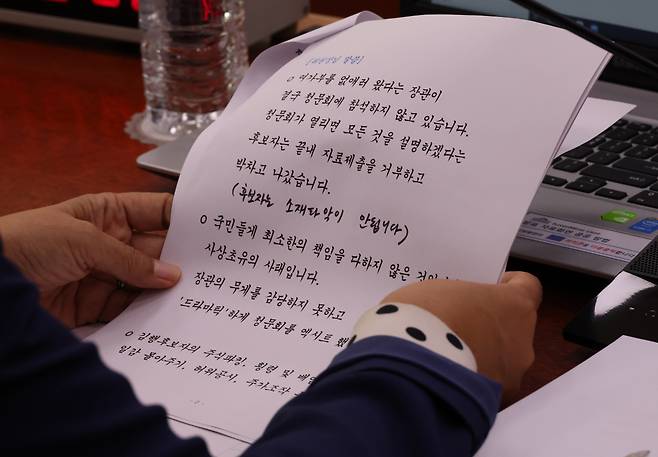 [위원장님 말씀]
○ 여가부를 없애러 왔다는 장관이
결국 청문회에 참석하지 않고 있습니다.
청문회가 열리면 모든 것을 설명하겠다는
후보자는 끝내 자료제출을 거부하고
박차고 나갔습니다.
(후보자는 소재파악이 안됩니다)
○ 국민들게 최소한의 책임을 다하지 않은
사상초유의 사태입니다.
장관의 무게를 감당하지 못하고
'드라마틱'하게 청문회를 엑시트
○ 김행후보자의 주식파킹, 횡령 및
일감 몰아주기, 허위공시, 주가조작